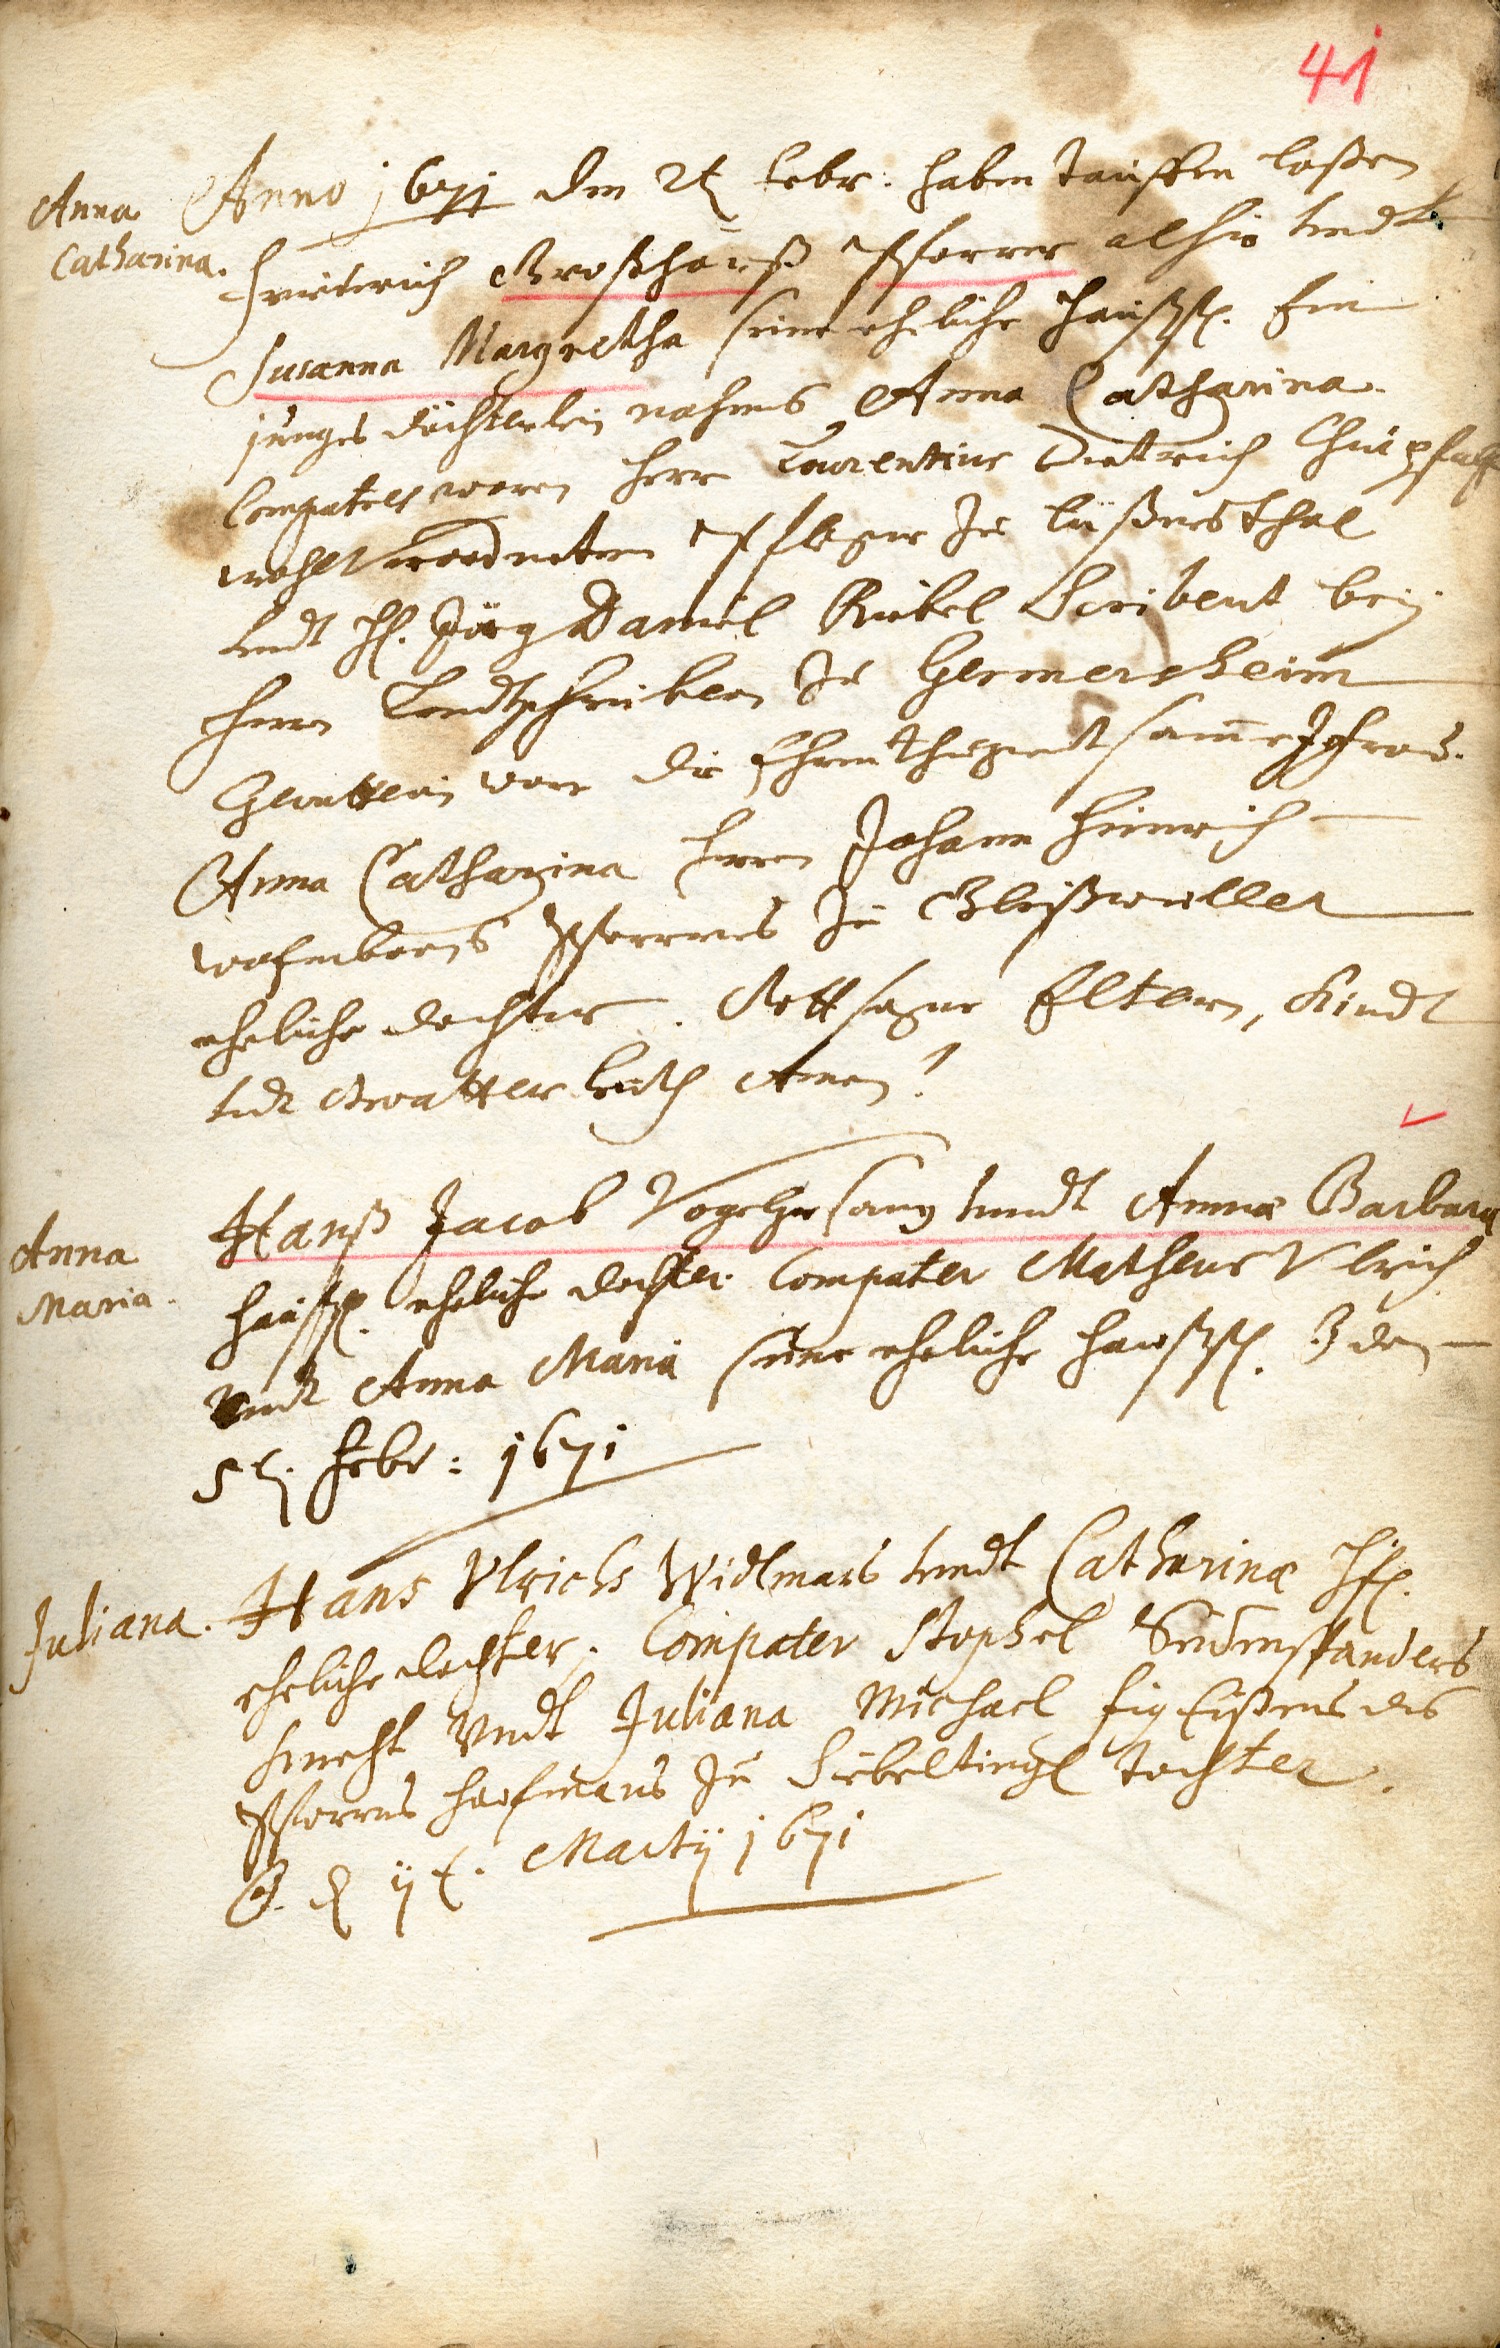 41
Anna
Catharina.
Anno 1671 den 2t Febr. haben Tauffen laßen
Friederich Großhanß Pfarrer alhie undt
Susanna Margretha seine eheliche Haußf. Ein
junges döchterlein nahmens Anna Catharina.
Compatres waren Herr Laurentius Dietrich Churpfaltz
wohlverordneter Pfleger zu Eüßersthal
undt H. Jörg Daniel Riebel Scribent bey
Herrn Landtschreibern zu Germersheim
Gevatterin war die Ehrn thugendtsame Jfraw.
Anna Catharina Herrn Johann Heinrich
Pfarrers zu Gleißweiller
eheliche dochter. Gott segne Eltern, Kindt
undt Gevatter leuth Amen!
Anna
Maria.
Hanß Jacob Vogelgesang undt Anna Barbara
haußf. eheliche dochter. Compater Matheus Ulrich
undt Anna Maria seine eheliche haußf. B den
5t. Febr: 1671
Juliana.
Hans Ulrichs Widlmars undt Catharina Hf.
eheliche dochter. Compater Stophel
knecht Undt Juliana Michael des
Pfarrers hoofmans zu Siebelting tochter.
B. d ij t. Martij 1671